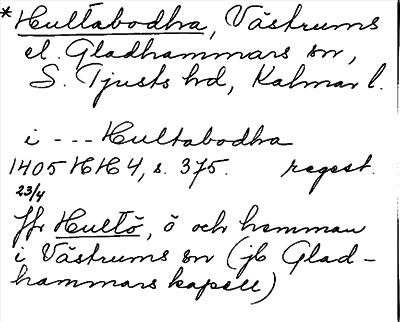 *Hultabodha, Västrums
el. Gladhammars sn,
S. Tjusts hd, Kalmar l.
i --- Hultabodha
1405 HH 4, s. 375. regest.
23/4
Jfr Hultö, ö och hemman
i Västrums sn (jb Glad-
hammars kapell)